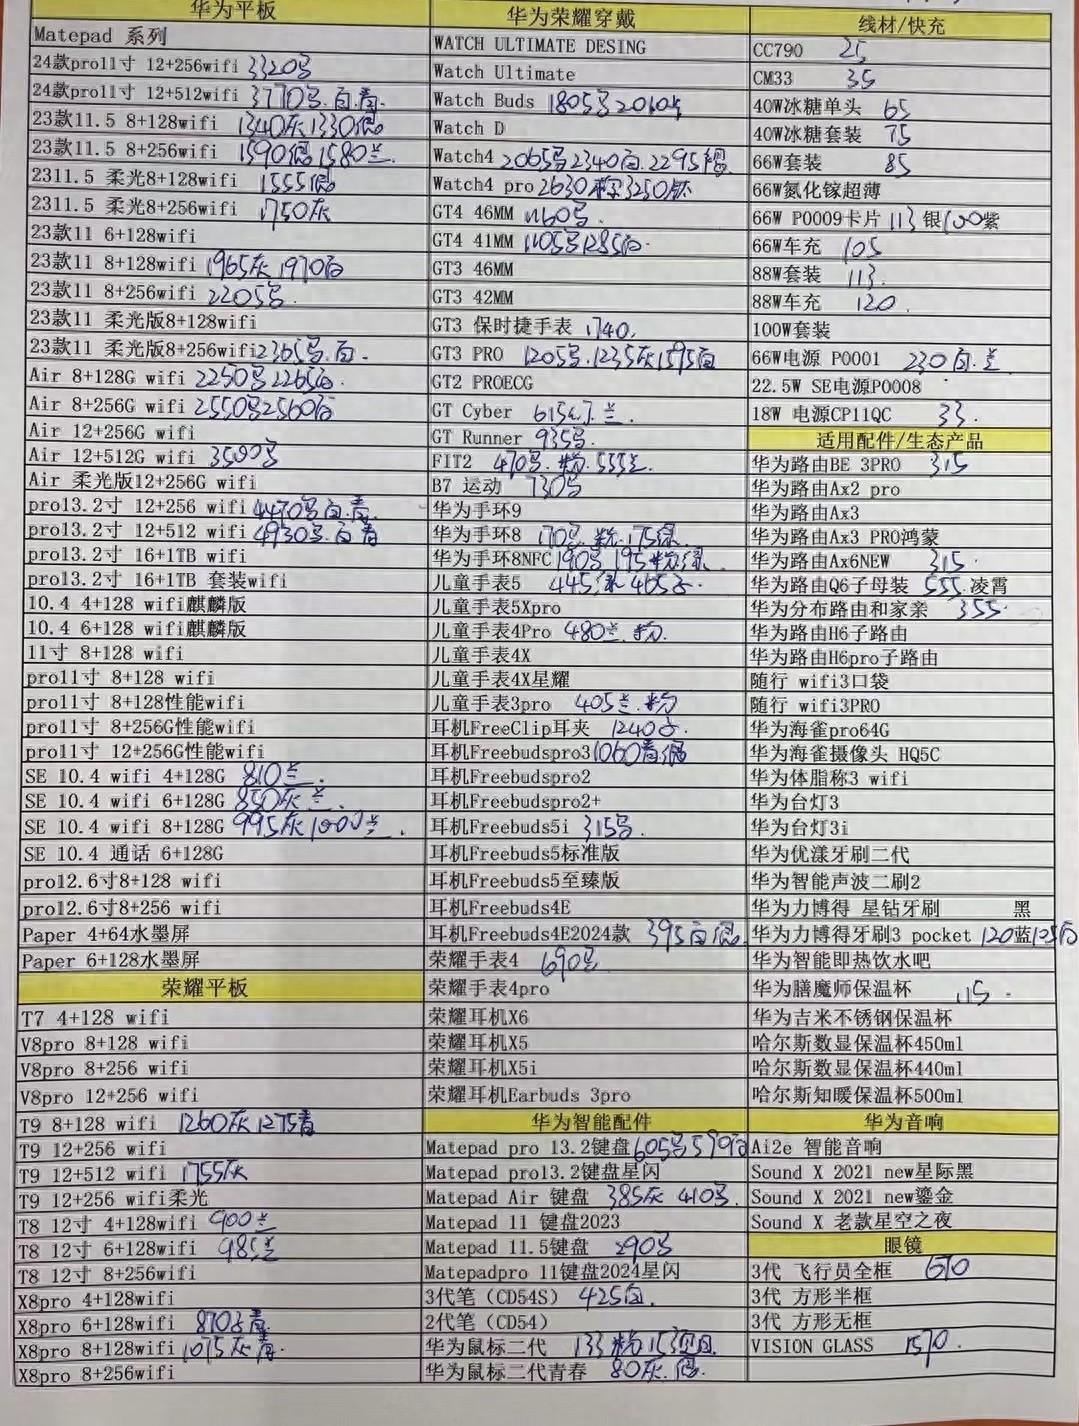 华为平板
Matepad 系列
24款pro11寸 12+256wifi 3320
24款pro11寸 12+512wifi 3770 白.青
23款11.5 8+128wifi 1340灰1330
23款11.5 8+256wifi 1590 1580兰
2311.5 柔光8+128wifi 1555
2311.5 柔光8+256wifi 1750灰
23款11 6+128wifi
23款11 8+128wifi 1965灰 1970白
23款11 8+256wifi 2205
23款11 柔光版8+128wifi
23款11 柔光版8+256wifi 2365 白
Air 8+128G wifi 2250 2265白
Air 8+256G wifi 2550 2560白
Air 12+256G wifi
Air 12+512G wifi 3500
Air 柔光版12+256G wifi
pro13.2寸 12+256 wifi 4470 白.青
pro13.2寸 12+512 wifi 4930 白青
pro13.2寸 16+1TB wifi
pro13.2寸 16+1TB 套装wifi
10.4 4+128 wifi麒麟版
10.4 6+128 wifi麒麟版
11寸 8+128 wifi
pro11寸 8+128 wifi
pro11寸 8+128性能wifi
pro11寸 8+256G性能wifi
pro11寸 12+256G性能wifi
SE 10.4 wifi 4+128G 810兰.
SE 10.4 wifi 6+128G 850灰 兰.
SE 10.4 wifi 8+128G 995灰1000兰.
SE 10.4 通话 6+128G
pro12.6寸8+128 wifi
pro12.6寸8+256 wifi
Paper 4+64水墨屏
Paper 6+128水墨屏
荣耀平板
T7 4+128 wifi
V8pro 8+128 wifi
V8pro 8+256 wifi
V8pro 12+256 wifi
T9 8+128 wifi 1260灰1275青
T9 12+256 wifi
T9 12+512 wifi 1755灰
T9 12+256 wifi柔光
T8 12寸 4+128wifi 900兰
T8 12寸 6+128wifi 985兰
T8 12寸 8+256wifi
X8pro 4+128wifi
X8pro 6+128wifi 870 青
X8pro 8+128wifi 1075灰青.
X8pro 8+256wifi
华为荣耀穿戴
WATCH ULTIMATE DESING
Watch Ultimate
Watch Buds 1805 2060
Watch D
Watch4 2065 2340白.2295
Watch4 pro 2630 3250钛
GT4 46MM 1160
GT4 41MM 1105 1285白.
GT3 46MM
GT3 42MM
GT3 保时捷手表 1740.
GT3 PRO 1205 1235灰1595白
GT2 PROECG
GT Cyber 615 兰.
GT Runner 935
FIT2 470 粉.555兰.
B7 运动 730
华为手环9
华为手环8 170 粉.175绿.
华为手环8NFC 190 195粉绿
儿童手表5 445绿465
儿童手表5Xpro
儿童手表4Pro 480兰.粉.
儿童手表4X
儿童手表4X星耀
儿童手表3pro 405兰.粉
耳机FreeClip耳夹 1240
耳机Freebudspro3 1060青
耳机Freebudspro2
耳机Freebudspro2+
耳机Freebuds5i 315
耳机Freebuds5标准版
耳机Freebuds5至臻版
耳机Freebuds4E
耳机Freebuds4E2024款 395白
荣耀手表4 690
荣耀手表4pro
荣耀耳机X6
荣耀耳机X5
荣耀耳机X5i
荣耀耳机Earbuds 3pro
华为智能配件
Matepad pro 13.2键盘 605 590白
Matepad pro13.2键盘星闪
Matepad Air 键盘 385灰 410
Matepad 11 键盘2023
Matepad 11.5键盘 290
Matepadpro 11键盘2024星闪
3代笔（CD54S） 425白.
2代笔（CD54）
华为鼠标二代 133粉153
华为鼠标二代青春 80灰.
线材/快充
CC790 25
CM33 35
40W冰糖单头 65
40W冰糖套装 75
66W套装 85
66W氮化镓超薄
66W P0009卡片 113 银100紫
66W车充 105
88W套装 113.
88W车充 120.
100W套装
66W电源 P0001 230白.兰
22.5W SE电源P0008
18W 电源CP11QC 33.
适用配件/生态产品
华为路由BE 3PRO 315
华为路由Ax2 pro
华为路由Ax3
华为路由Ax3 PRO鸿蒙
华为路由Ax6NEW 315.
华为路由Q6子母装 555.凌霄
华为分布路由和家亲 355.
华为路由H6子路由
华为路由H6pro子路由
随行 wifi3口袋
随行 wifi3PRO
华为海雀pro64G
华为海雀摄像头 HQ5C
华为体脂称3 wifi
华为台灯3
华为台灯3i
华为优漾牙刷二代
华为智能声波二刷2
华为力博得 星钻牙刷 黑
华为力博得牙刷3 pocket 120蓝125白
华为智能即热饮水吧
华为膳魔师保温杯 115.
华为吉米不锈钢保温杯
哈尔斯数显保温杯450ml
哈尔斯数显保温杯440ml
哈尔斯知暖保温杯500ml
华为音响
Ai2e 智能音响
Sound X 2021 new星际黑
Sound X 2021 new鎏金
Sound X 老款星空之夜
眼镜
3代 飞行员全框 670
3代 方形半框
3代 方形无框
VISION GLASS 1570.